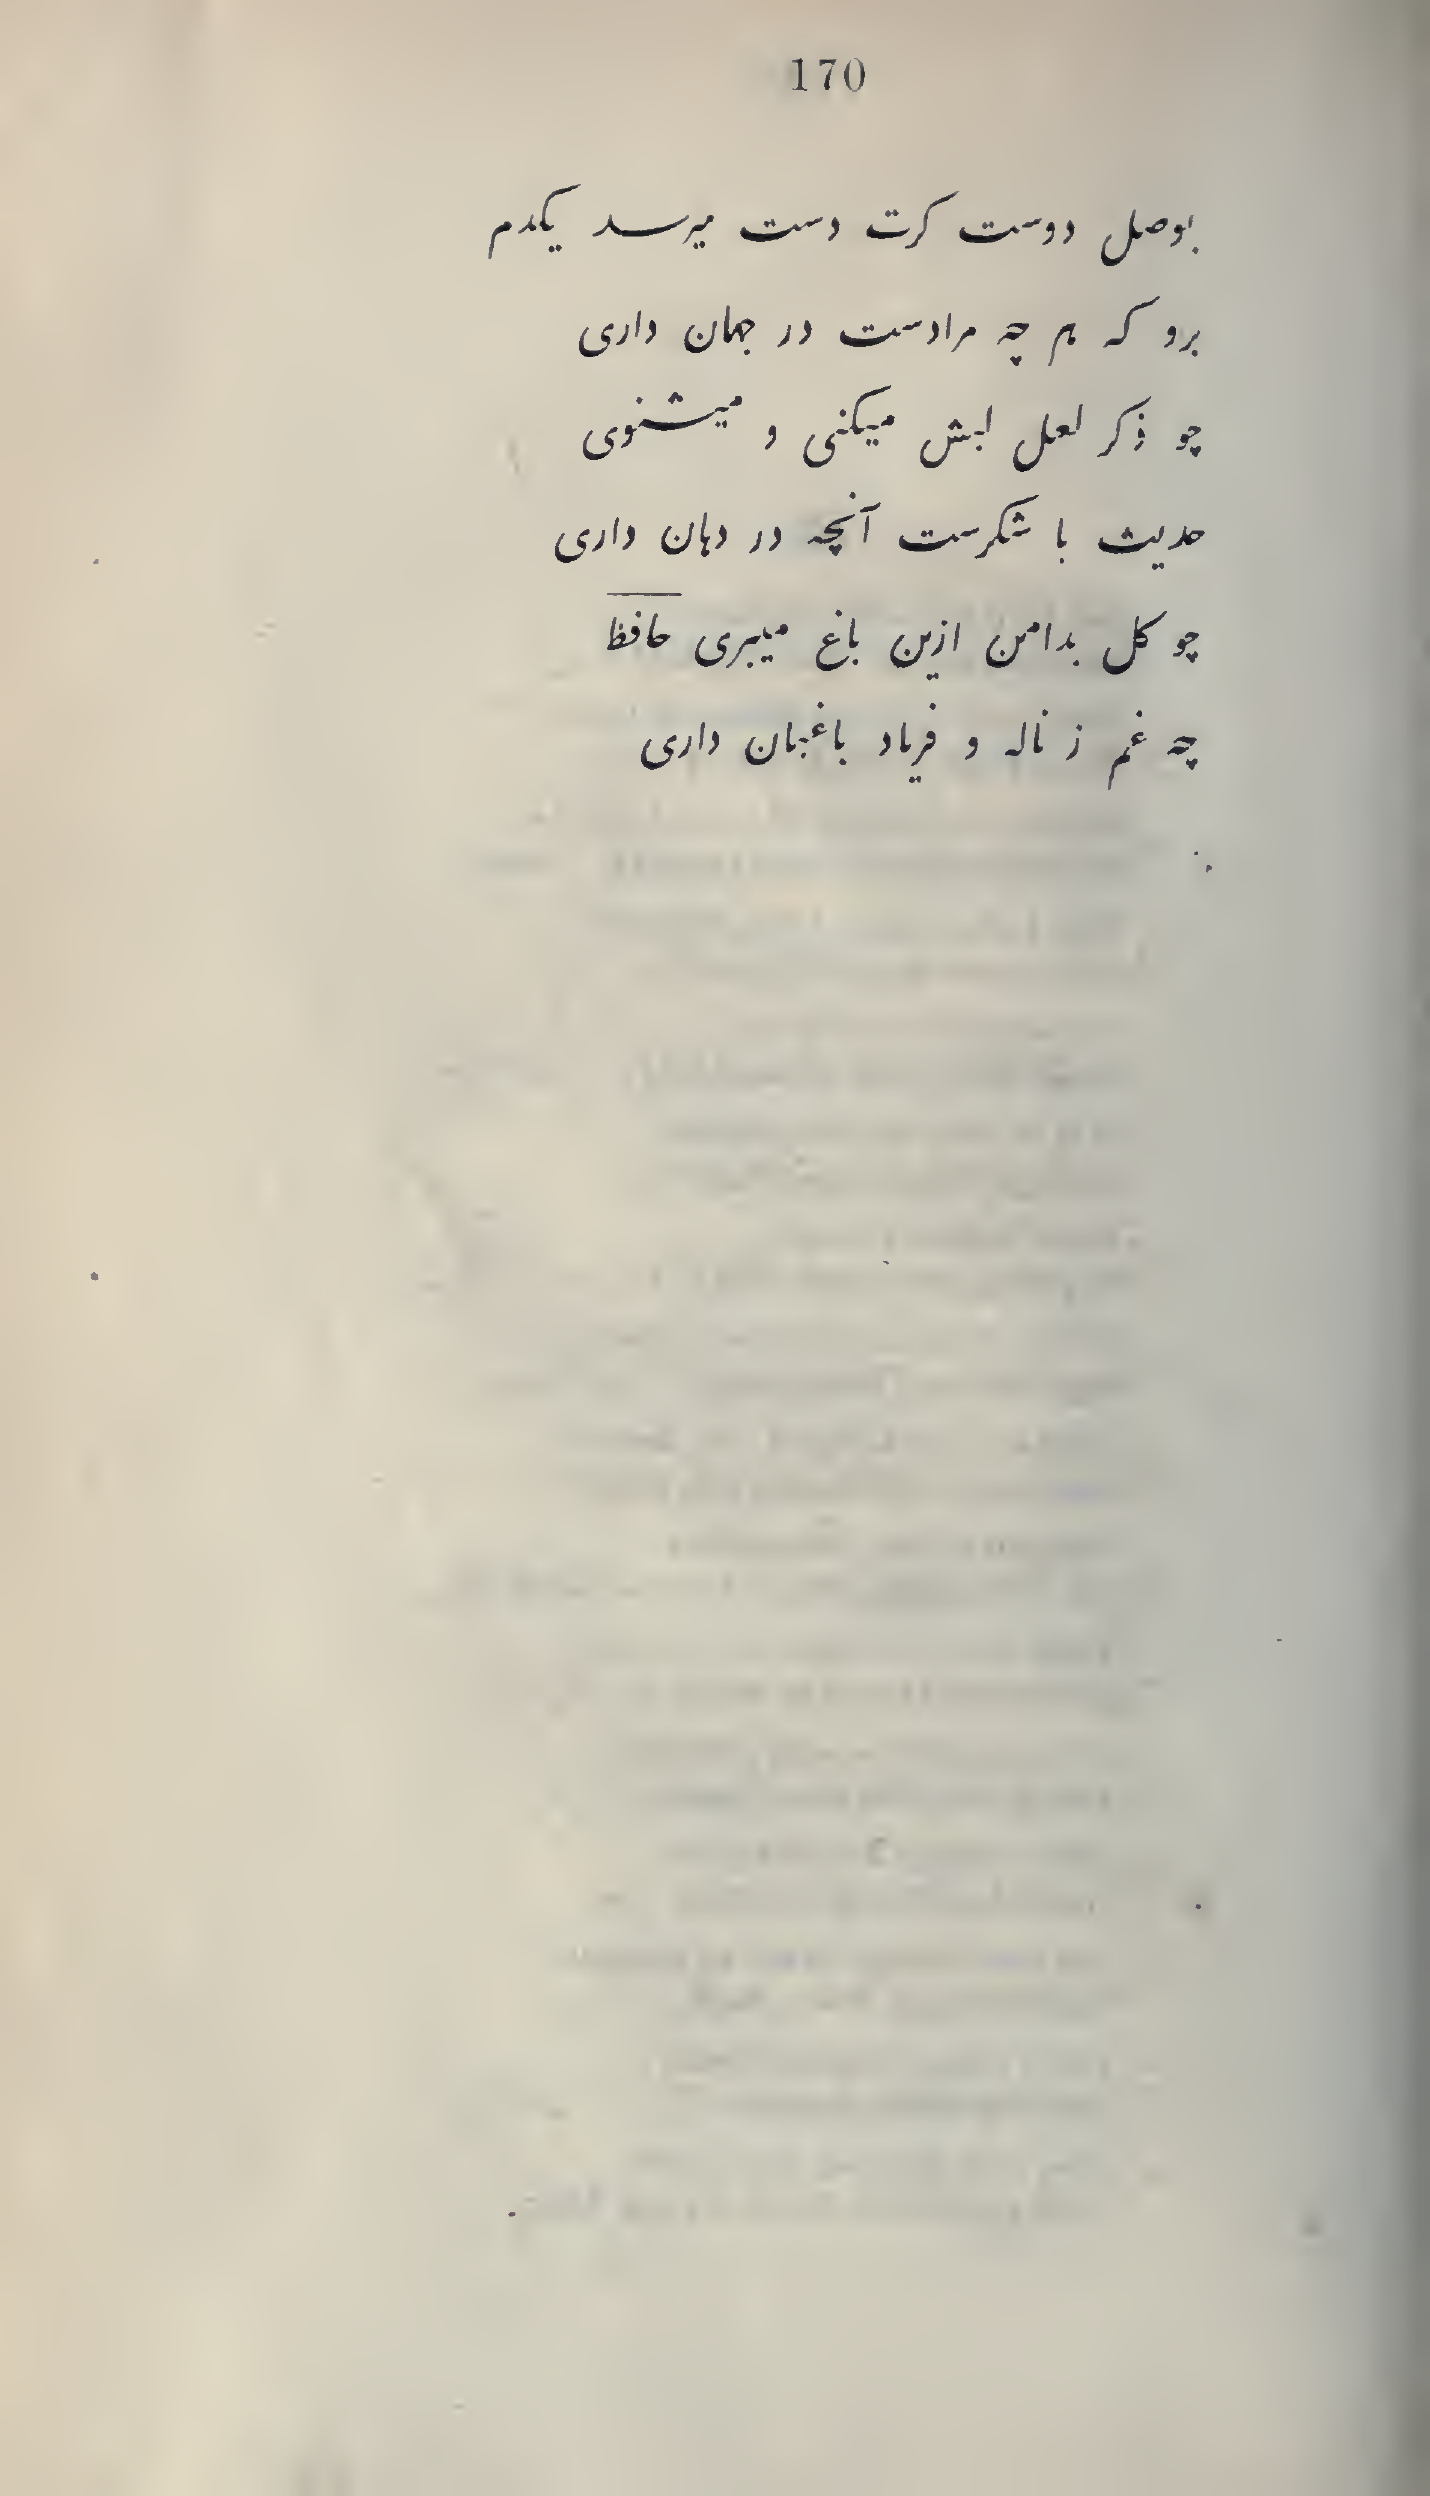 170
بوصل دوست کرت دست میرسد یکدم
برو که هر چه مرادست در جهان داری
چو ذکر لعل لبش میکنی و میشنوی
حدیث با شکرست آنچه در دهان داری
چو کل بدامن ازین باغ میبری حافظ
چه غم ز ناله و فریاد باغبان داری